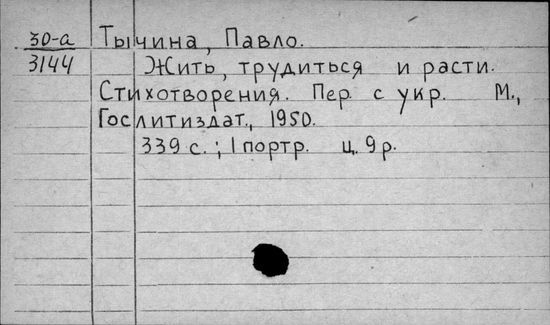 30-а Тычина, Павло.
3144 Жить, трудиться и расти.
Стихотворения. Пер. с укр. М.,
Гослитиздат, 1950.
339 с.; 1 портр. ц. 9 р.